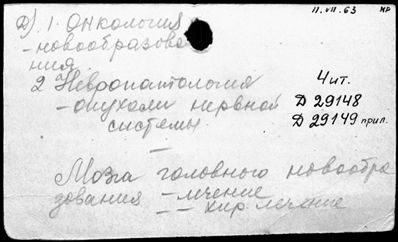 11.VII.63 НР
Д) 1. Онкология
- новообразова
ния.
2 Невропатология
- опухоли нервной
системы.
Чит.
Д 29148
Д 29149 прил.
Мозга головного новообра
зования - лечение
- - хир. лечение